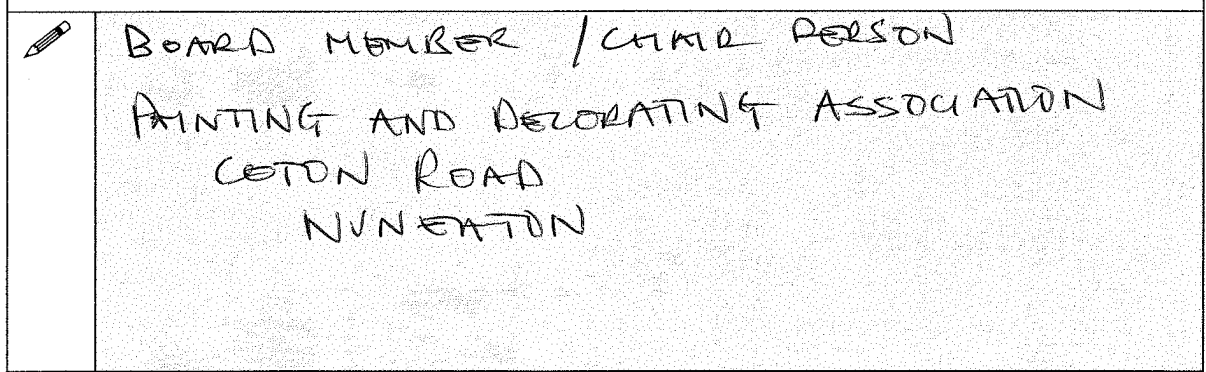 BOARD MEMBER / CHAIR PERSON
PAINTING AND DECORATING ASSOCIATION
COTON ROAD
NUNEATON